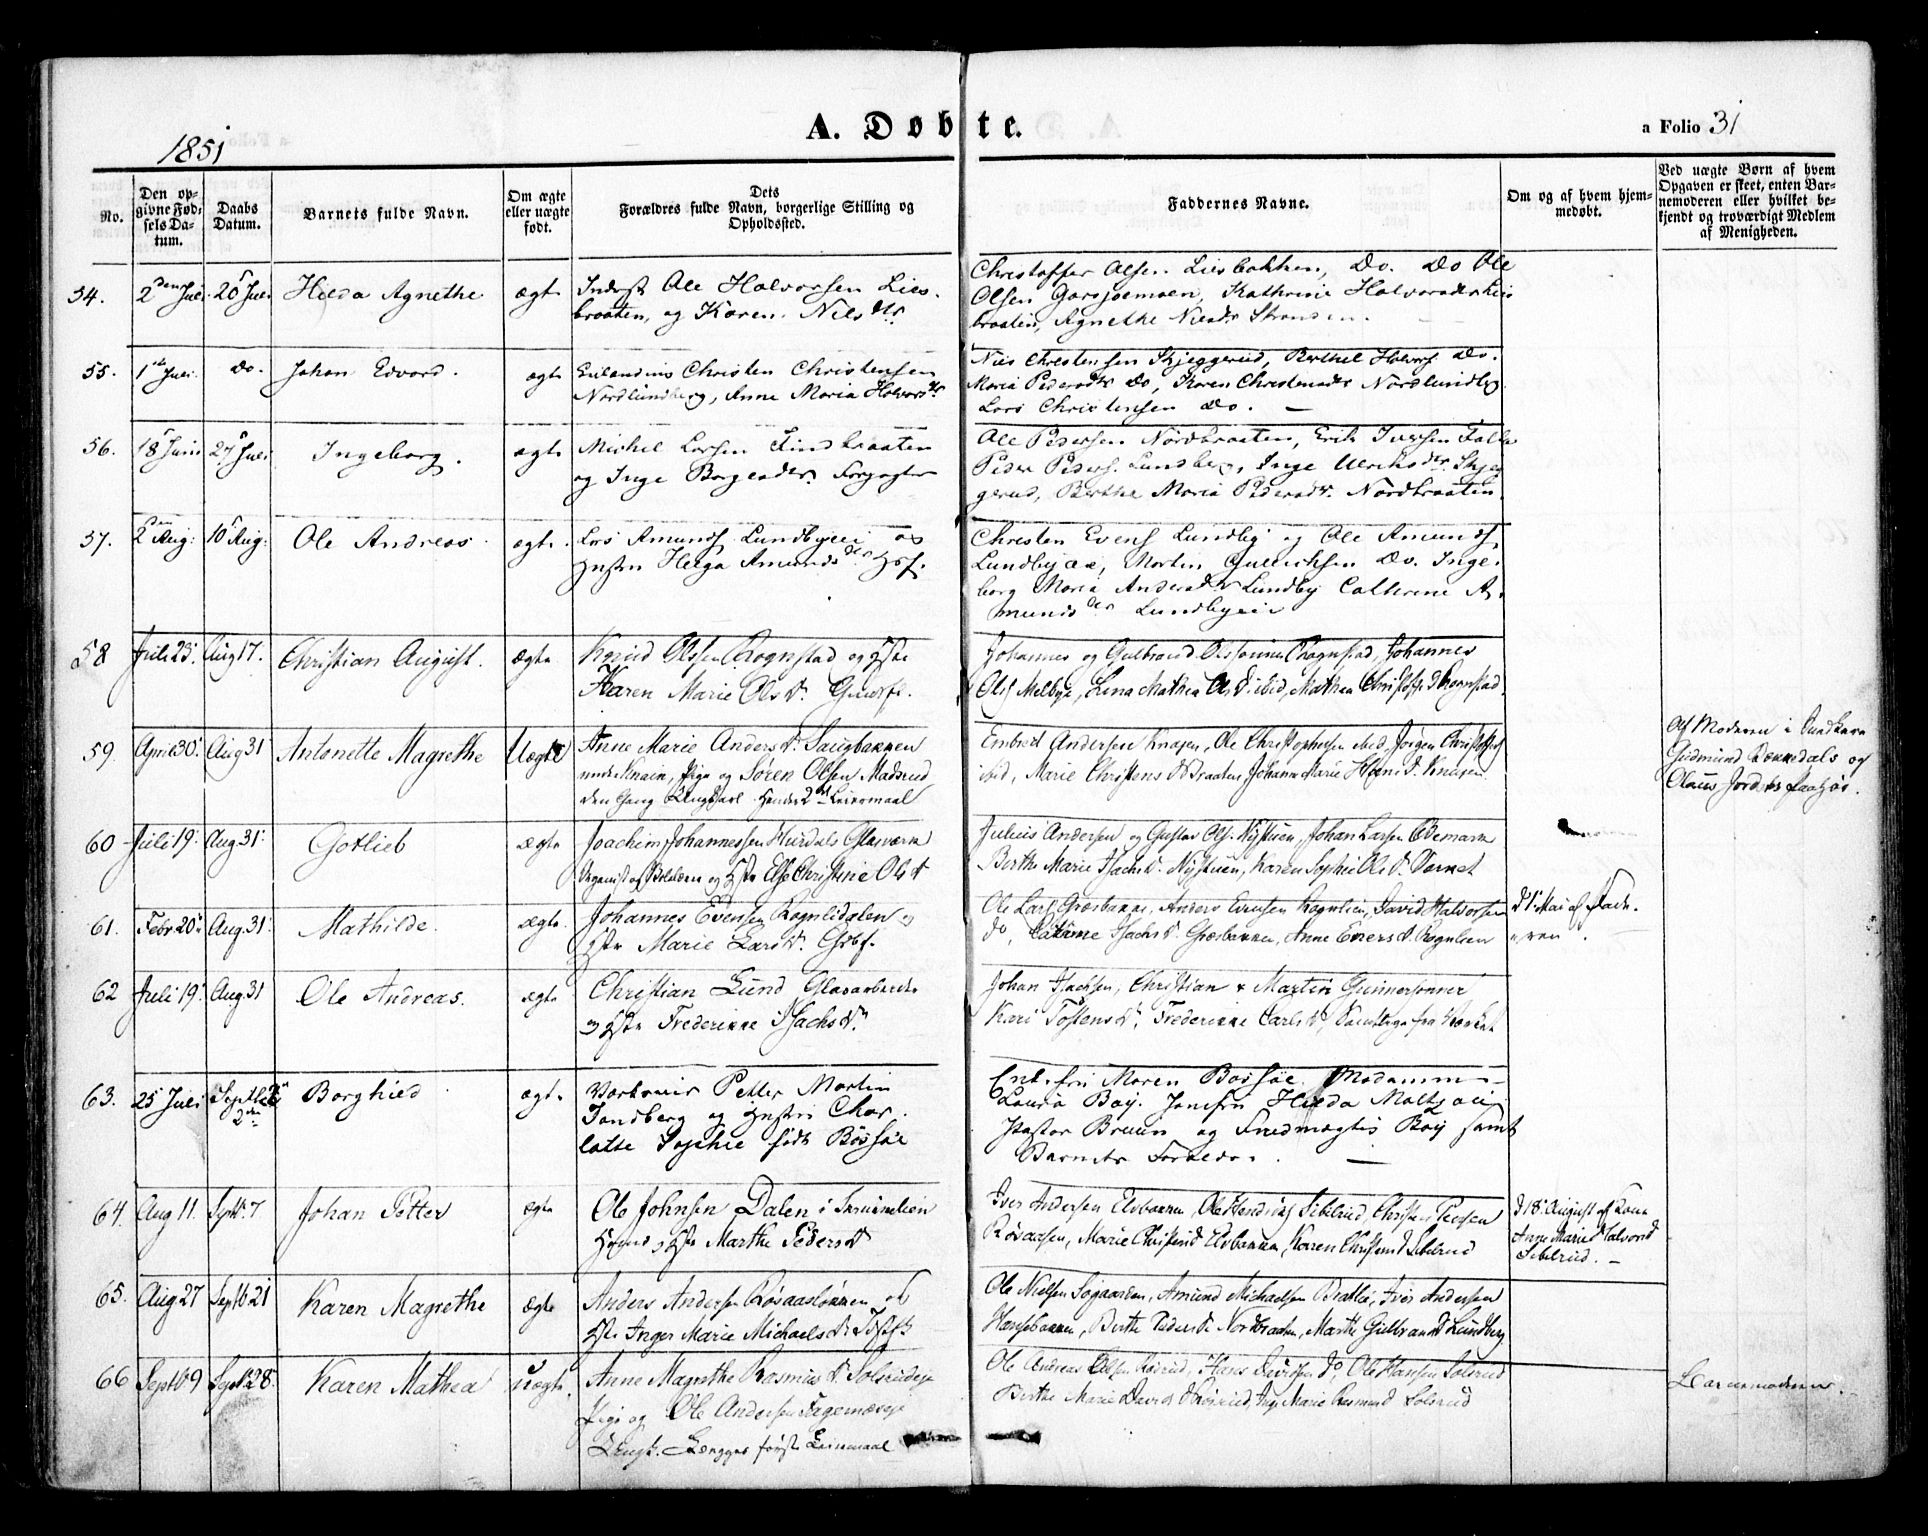 1851
A. Døbte.
a Folio 31
No.
Den op-
givne Fød-
sels Da-
tum.
Daabs
Datum.
Barnets fulde Navn.
Om ægte
eller uægte
født.
Dets
Forældres fulde Navn, borgerlige Stilling og
Opholdssted.
Faddernes Navne.
Om og af hvem hjem-
medøbt.
Ved uægte Børn af hvem
Opgaven er skeet, enten Bar-
nemoderen eller hvilket be-
kjendt og troværdigt Medlem
af Menigheden.
54. 2den Juli 20 Juli Hilda Agnethe ægte Inderst Ole Halvorsen Lies-
braaten, og Karen Nilsdtr
Christoffer Olsen Liesbakken, Do. Do Ole
Olsen Garsjoemoen, Kathrine Halvorsdtr Lies
braaten, Agnethe Strandsen.
55. 1ste Juli. Do. Johan Edvard. ægte Christen Christensen
Nordlundberg, Anne Maria Halvorsdtr
Nils Christensen Skjeggerud, Berthel Halvors Do.
Maria Pedersdtr Do, Karen Christensdtr Nordlundbg
Lars Christensen Do. —
56. 18 Juni 27 Juli Ingeborg. ægte Michel Larsen Findbraaten
og Inge Borgersdtr.
Ole Pedersen Nordbraaten, Erik Iversen Falla
Peder Peders. Lundberg, Inge Ulriksdtr. Skjeg
gerud, Berthe Maria Pedersdtr. Nordbraaten.
57. 2den Aug: 10 Aug: Ole Andreas ægte. Lars Amunds. Lundbyeie og
Hustru Helga Amundsdtr Hsf.
Christen Evens Lundby og Ole Amunds.
Lundbyeie, Martin Gullichsen Do. Inge-
borg Maria Andersdtr Lundby Cathrine A-
mundsdtr Lundbyeie
58 Juli 23. Aug 17. Christian August. ægte Knud Olssen Rognstad og Hste
Karen Marie Olsdtr. Gaardf.
Johannes og Gulbrand Rognstad, Johannes
Ols Melbye, Lena Mathea Olsdtr ibid, Mathea Christoffd Rognstad.
59. April 30. Aug 31 Antonette Magrethe Uægte Anne Marie Andersdtr. Saugbakken
under Knain, Pige og Søren Olsen Madsrud
den Gang Ungkarl. Hendes 2det Leiermaal
Embret Andersen Knajen, Ole Christophersen ibid, Jørgen Christoffs
ibid, Marie Christensd Braaten, Johanne Marie Hansd. Knajen.
Af Moderen i
Gudmund Rønndals og
Olaus
60 Juli 19. Aug 31. Gotlieb ægte Joachim Johannessen Hurdals Glasværk
og Hste Else Christine Olsdtr
Julius Andersen og Gustav Ols. Nystuen, Johan Larsen
Berthe Marie Isachsdtr. Nystuen, Karen Sophie Olsdtr. Værket
61. Febr. 20. Aug. 31. Mathilde. ægte. Johannes Evensen Rognlidalen og
Hste Marie Larsdtr. Grbf.
Ole Lars Græsbakke, Anders Evensen Rognlien, David Halvorsen
do, Isachsd. Græsbakken, Anne Eversd. Rognlien
D 1 Mai af Fade-
ren.
62 Juli 19. Aug. 31 Ole Andreas. ægte. Christian Lund Glasarbeider
og Hste Frederikke Isachsdtr.
Johan Isachsen, Christian & Martin Gunnersønner
Kari Tostensdtr, Frederikke Carlsdtr, Samtlige fra Værket
63. 25 Juli Septbr
2den Borghild ægte Petter Martin
Sandberg og Hustru Char-
lotte Sophie født Bøssøe
Enkefru Maren Bøssøe. Madamm
Laura Boy. Jomfru Hilda Maltzou
Pastor Bruun og Boy samt
Barnets Forældre. —
64. Aug 11. Septbr. 7 Johan Petter ægte Ole Johnsen Dalen i Skrukkelien
og Hste Marthe Pedersdtr
Iver Andersen Elvbakken, Ole Hendriks Sibelrud, Christen Pedersen
Røsaasen, Marie Christensd Elvbakken, Karen Christensd Sibelrud
D 18. August af Kone
Anne Marie Halvorsd
Sibelrud. —
65. Aug 27 Septbr 21 Karen Magrethe ægte Anders Andersen Røsaasløkken og
Hste Inger Marie Michaelsdtr.
Ole Nielsen Sogaarden, Amund Michaelsen Bratlie, Iver Andersen
Hansebakken, Berthe Pedersd Nordbraaten, Marthe Gulbrandsd Lundberg
66 Septbr 9 Septbr 28. Karen Mathea uægte. Anne Magrethe Rasmusdtr. Solsrudeje
Pige og Ole Andersen Fagernæseje
Ungk. Begges første Leiermaal
Ole Andreas Olsen Røsrud, Hans Davidsen do, Ole Hansen Solsrud
Berthe Marie Davidsd Røsrud, Inge Marie Rasmusd Solsrud
Barnemoderen.